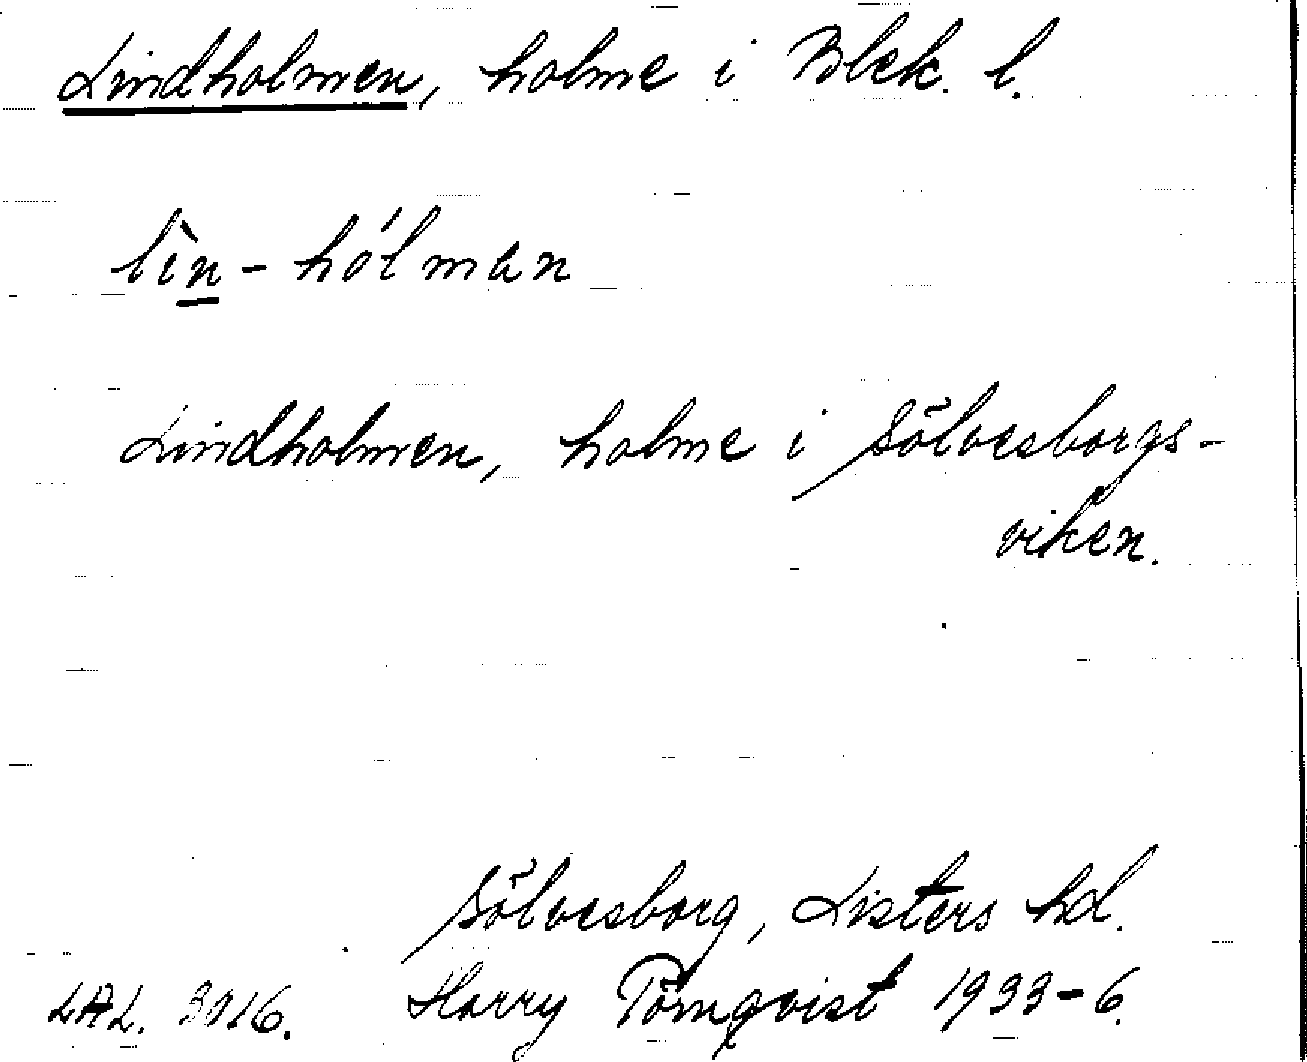 Lindholmen, holme i Blek. l.
lìn-hólman
Lindholmen, holme i Sölvesborgs-
viken.
Sölvesborg, Listers hd.
LAL. 3016. Harry Törnqvist 1933-6.